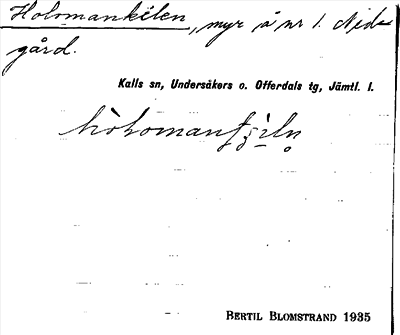 Holomankilen, myr å nr 1. Ned-
gård.
Kalls sn, Undersåkers o. Offerdals tg, Jämtl. l.
BERTIL BLOMSTRAND 1935